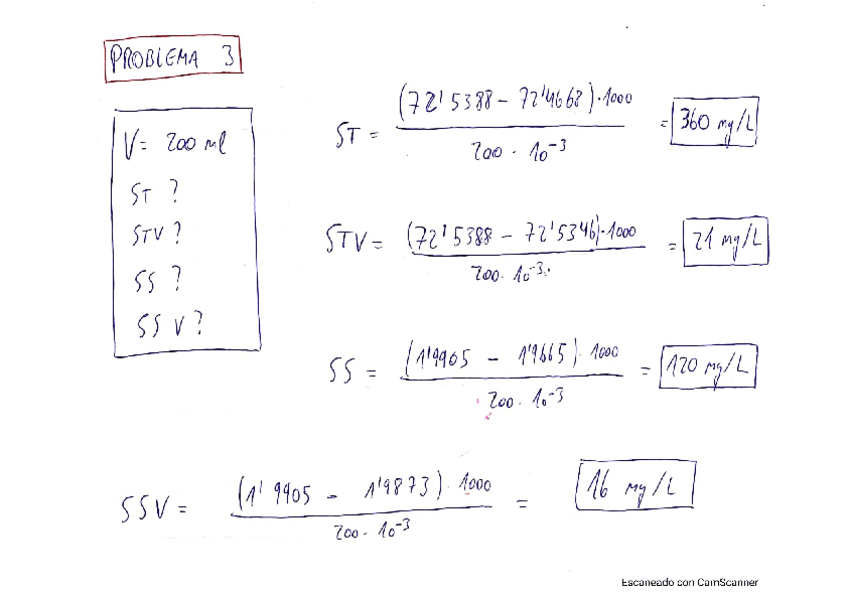 PROBLEMA 3
V = 200 ml
ST ?
STV ?
SS ?
SSV ?
ST = (72'5388 - 72'4668)·1000 / 200 · 10⁻³ = 360 mg/L
STV = (72'5388 - 72'5346)·1000 / 200 · 10⁻³ = 21 mg/L
SS = (1'9905 - 1'9665)·1000 / 200 · 10⁻³ = 120 mg/L
SSV = (1'9905 - 1'9873)·1000 / 200 · 10⁻³ = 16 mg/L
Escaneado con CamScanner